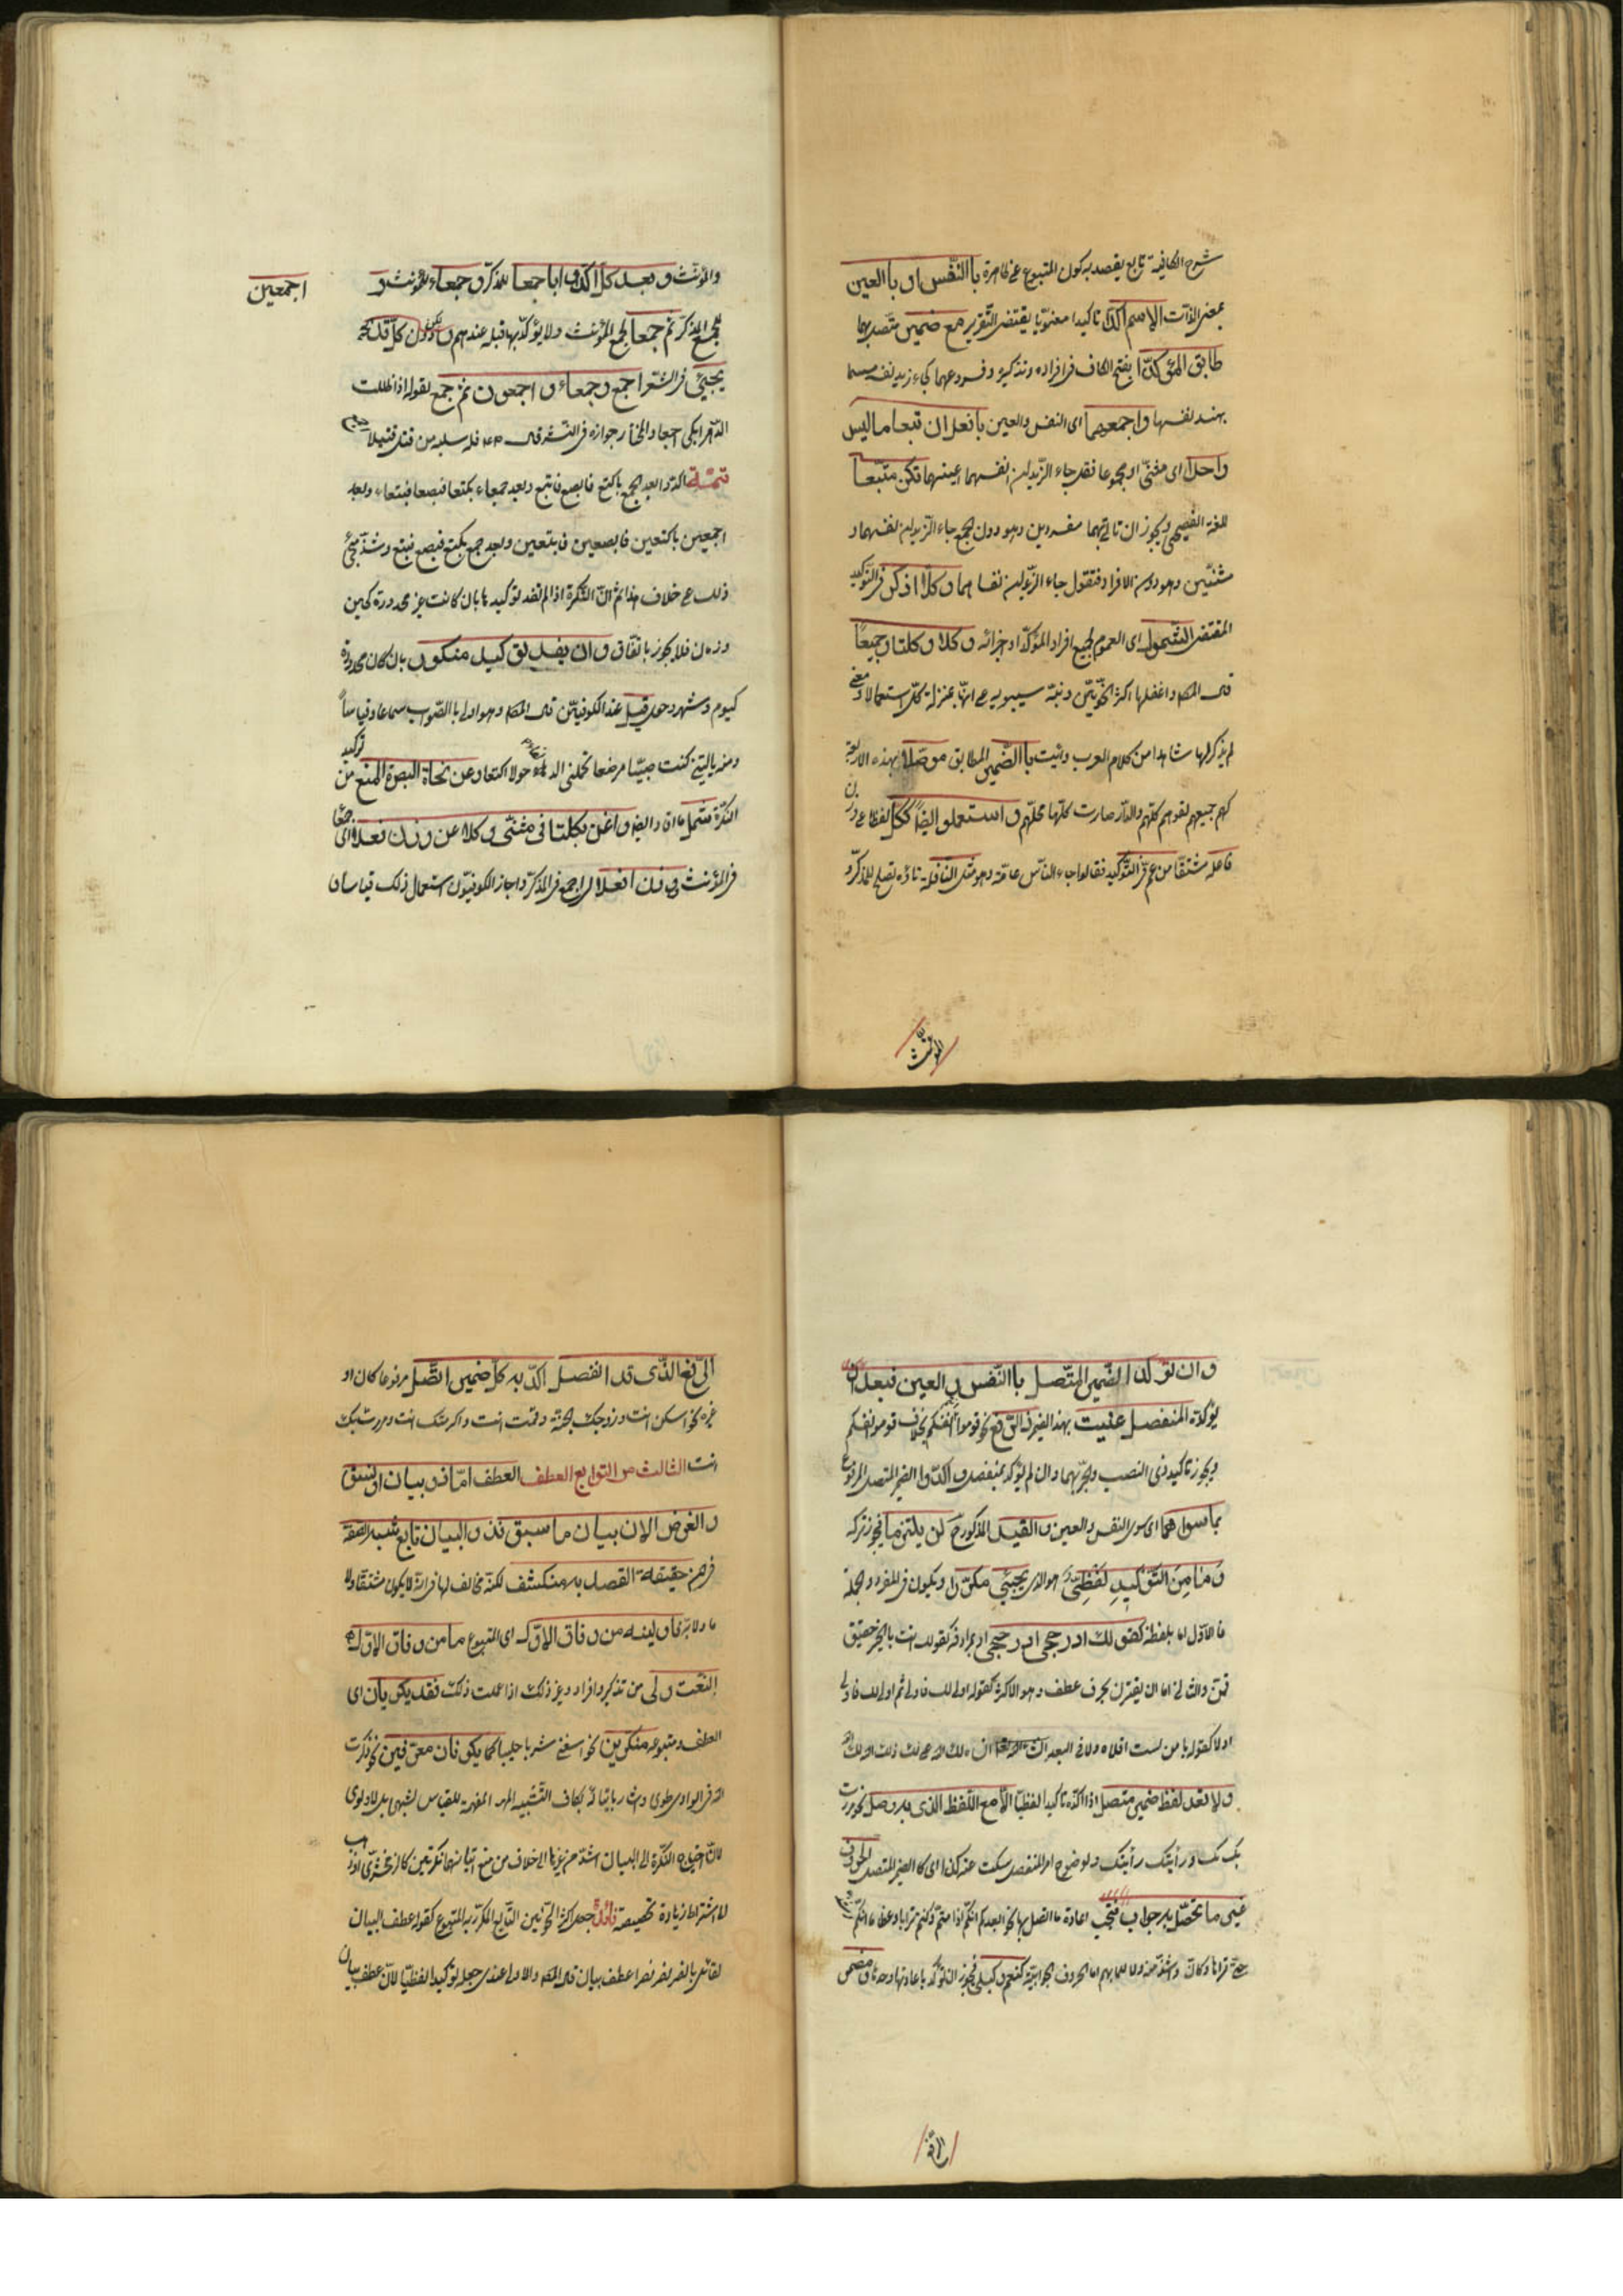 شرح الكافية تابع يقصد به كون المتبوع على ظاهره بالنفس او بالعين
بمعنى الذات الاسم اكدا تاكيدا معنويا يقتضى التقرير مع ضمير متصل بهما
طابق المؤكدا بفتح الكاف فى افراده وتذكيره وفروعهما كجاء زيد نفسه
بهند نفسها واجمعهما اى النفس والعين بافعل ان تبعا ما ليس
واحدا اى مثنى او مجموعا فقل جاء الزيدان انفسهما اعينهما تكن متبعا
للغة الفصحى ويجوز ان تاتى بهما مفردين وهو دون الجمع جاء الزيدان نفسهما و
مثنيين وهو دون الافراد فتقول جاء الزيدان نفساهما وكلا اذكر فى التوكيد
المقتضى الشمول اى العموم لجميع افراد المؤكد او اجزائه وكلا وكلتا وجميعا
قال المصـ واغفلها اكثر النحويين ونبه سيبويه على انها بمنزلة كل استعمالا ومعنى
لم يذكر لها شاهدا من كلام العرب وأيت بالضمير المطابق موصلا بهذه الاربعة
كهم جميعهم لقوهم كلهم والدار صارت كلها محلهم واستعملوا ايضا ككل لفظا على وزن
فاعله مشتقا من عم فى التوكيد فقالوا جاء الناس عامة وهو مثل النافلة تاؤه تصلح للمذكر و
المؤنث
والمؤنث وبعد كل اكدوا باجمعا للمذكر وجمعاء للمؤنث و
اجمعين
لجمع المذكر ثم جمعا لجمع المؤنث ولا يؤكد بها قبله عندهم ودون كل قد
يجيئ فى الشعر اجمع وجمعاء واجمعون ثم جمع لقوله اذا ظللت
الدهر ابكى اجمعا والمختار جوازه فى النثر قال فله سلبه من قتل قتيلا
تتمة اكدوا بعد اجمع باكتع فابصع فابتع وبعد جمعاء بكتعا فبصعا فبتعاء وبعد
اجمعين باكتعين فابصعين فابتعين وبعد جمع بكتع فبصع فبتع وشذ مجئ
ذلك على خلاف هذا ثم ان النكرة اذا لم تفد توكيدها بان كانت غير محدودة كحين
وزمان فلا يجوز باتفاق وان يفد توكيد منكور بان كان محدودة
كيوم وشهر وحول قبل عند الكوفيين قال المصـ وهو اولى بالصواب سماعا وقياسا
ومنه يا ليتنى كنت صبيا مرضعا تحملنى الذلفاء حولا اكتعا وعن نحاة البصرة المنع من توكيد
النكرة شمل ما افاد ايضا واغن بكلتا فى مثنى وكلا عن وزن فعلاء اى جمعا
فى المؤنث ووزن افعلا اى اجمع فى المذكر واجاز الكوفيون استعمال ذلك قياسا و
وان تؤكد الضمير المتصل بالنفس والعين فبعد ان
يؤكد المنفصل عنيت بهذا الضمير ذا الرفع نحو قوموا انتم انفسكم بخلاف قوموا انفسكم
ويجوز تاكيد ذى النصب والجر بهما وان لم يؤكد بمنفصل واكدوا الضمير المتصل المرفوع
بما سواهما اى سوى النفس والعين والقيد المذكور ح لن يلتزما فيجوز تركه
وما من التوكيد لفظى هو الذى يجيئ مكررا ويكون فى المفرد والجملة
فالاول اما بلفظه كقولك ادرجى ادرجى او بمرادفه كقولك انت بالخير حقيق
قمن والثانى اما ان يقترن بحرف عطف وهو الاكثر كقوله اولى لك فاولى ثم اولى لك فاولى
اولا كقوله ايا من لست اقلاه ولا فى البعد انساه لك الله على ذاك لك الله لك الله
ولا تعد لفظ ضمير متصل اذا اكدته تاكيدا لفظيا الا مع اللفظ الذى به وصل نحو مررت
بك بك ورأيتك رأيتك ولوضوح امر المنفصل سكت عنه كذا اى كالضمير المتصل الحروف
غير ما تحصل به جواب فتجب اعادة ما اتصل بها نحو ايعدكم انكم اذا متم وكنتم ترابا وعظاما انكم
حتى تراها وكأن وشذ اما الحروف الجوابية كنعم وكبلى فيجوز ان تؤكد باعادتها وحدها ومضمر
الرفع
الرفع الذى قد انفصل اكد به كل ضمير اتصل مرفوعا كان او
غيره نحو اسكن انت وزوجك الجنة وقمت انت واكرمتك انت ومررت بك
انت الثالث من التوابع العطف العطف اما ذو بيان او نسق
والغرض الان بيان ما سبق فذو البيان تابع شبه الصفة
فى ان حقيقة القصد به منكشف لكنه مخالف لها فى انه لا يكون مشتقا ولا
ماولا به فاولينه من وفاق الاول اى المتبوع ما من وفاق الاول
النعت ولى من تذكير وافراد وغير ذلك اذا علمت ذلك فقد يكونان اى
العطف ومتبوعه منكرين نحو اسقنى شربا حليبا كما يكونان معرفين نحو ذكرت
الله فى الوادى طوى واشار باتيانه بكاف التشبيه المفهمة للقياس لشبهى بل الاولوى
لان احتياج النكرة الى البيان اشد من غيرها الى خلاف من منع اتيانهما نكرتين كالزمخشرى او ذهب
الى اشتراط زيادة تخصيصه فائدة جعل اكثر النحويين التابع المكرر به المتبوع كقوله عطف البيان
لقائل يا نصر نصر نصرا عطف بيان قال المصـ والاولى عندى جعله توكيدا لفظيا لان عطف بيان